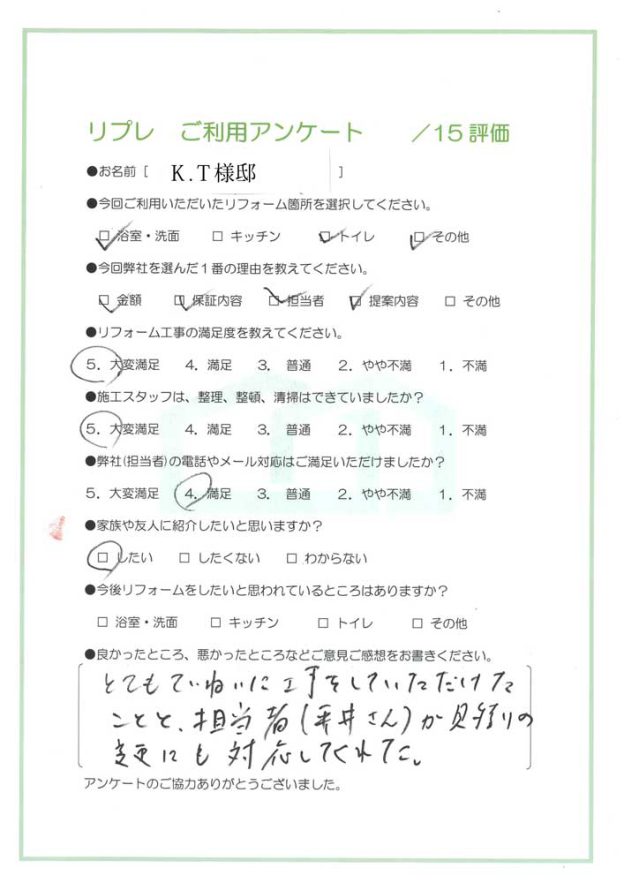 リプレ ご利用アンケート /15評価
●お名前［ K.T様邸 ］
●今回ご利用いただいたリフォーム箇所を選択してください。
☑ 浴室・洗面 □ キッチン ☑ トイレ ☑ その他
●今回弊社を選んだ1番の理由を教えてください。
☑ 金額 ☑ 保証内容 ☑ 担当者 ☑ 提案内容 □ その他
●リフォーム工事の満足度を教えてください。
5．大変満足 4．満足 3．普通 2．やや不満 1．不満
●施工スタッフは、整理、整頓、清掃はできていましたか？
5．大変満足 4．満足 3．普通 2．やや不満 1．不満
●弊社(担当者)の電話やメール対応はご満足いただけましたか？
5．大変満足 4．満足 3．普通 2．やや不満 1．不満
●家族や友人に紹介したいと思いますか？
□ したい □ したくない □ わからない
●今後リフォームをしたいと思われているところはありますか？
□ 浴室・洗面 □ キッチン □ トイレ □ その他
●良かったところ、悪かったところなどご意見ご感想をお書きください。
とてもていねいに工事をしていただけた
ことと、担当者(平井さん)が見積りの
変更にも対応してくれた。
アンケートのご協力ありがとうございました。